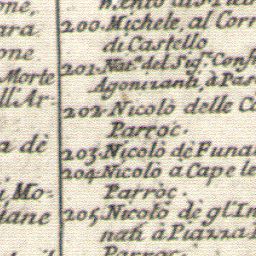 one,
ara
one
Morte
ll'Ar-
a dè
i Mo-
tane
200. Michele, al Corr
di Castello
201. Nat.^e del Sig.^r Conf
Agonizanti, à Pas
202. Nicolò delle Ca
Parroc.
203. Nicolò dè Funa
204. Nicolò a Cape le
Parròc.
205. Nicolò dè gl'In
nati à Piazza
Parroc.